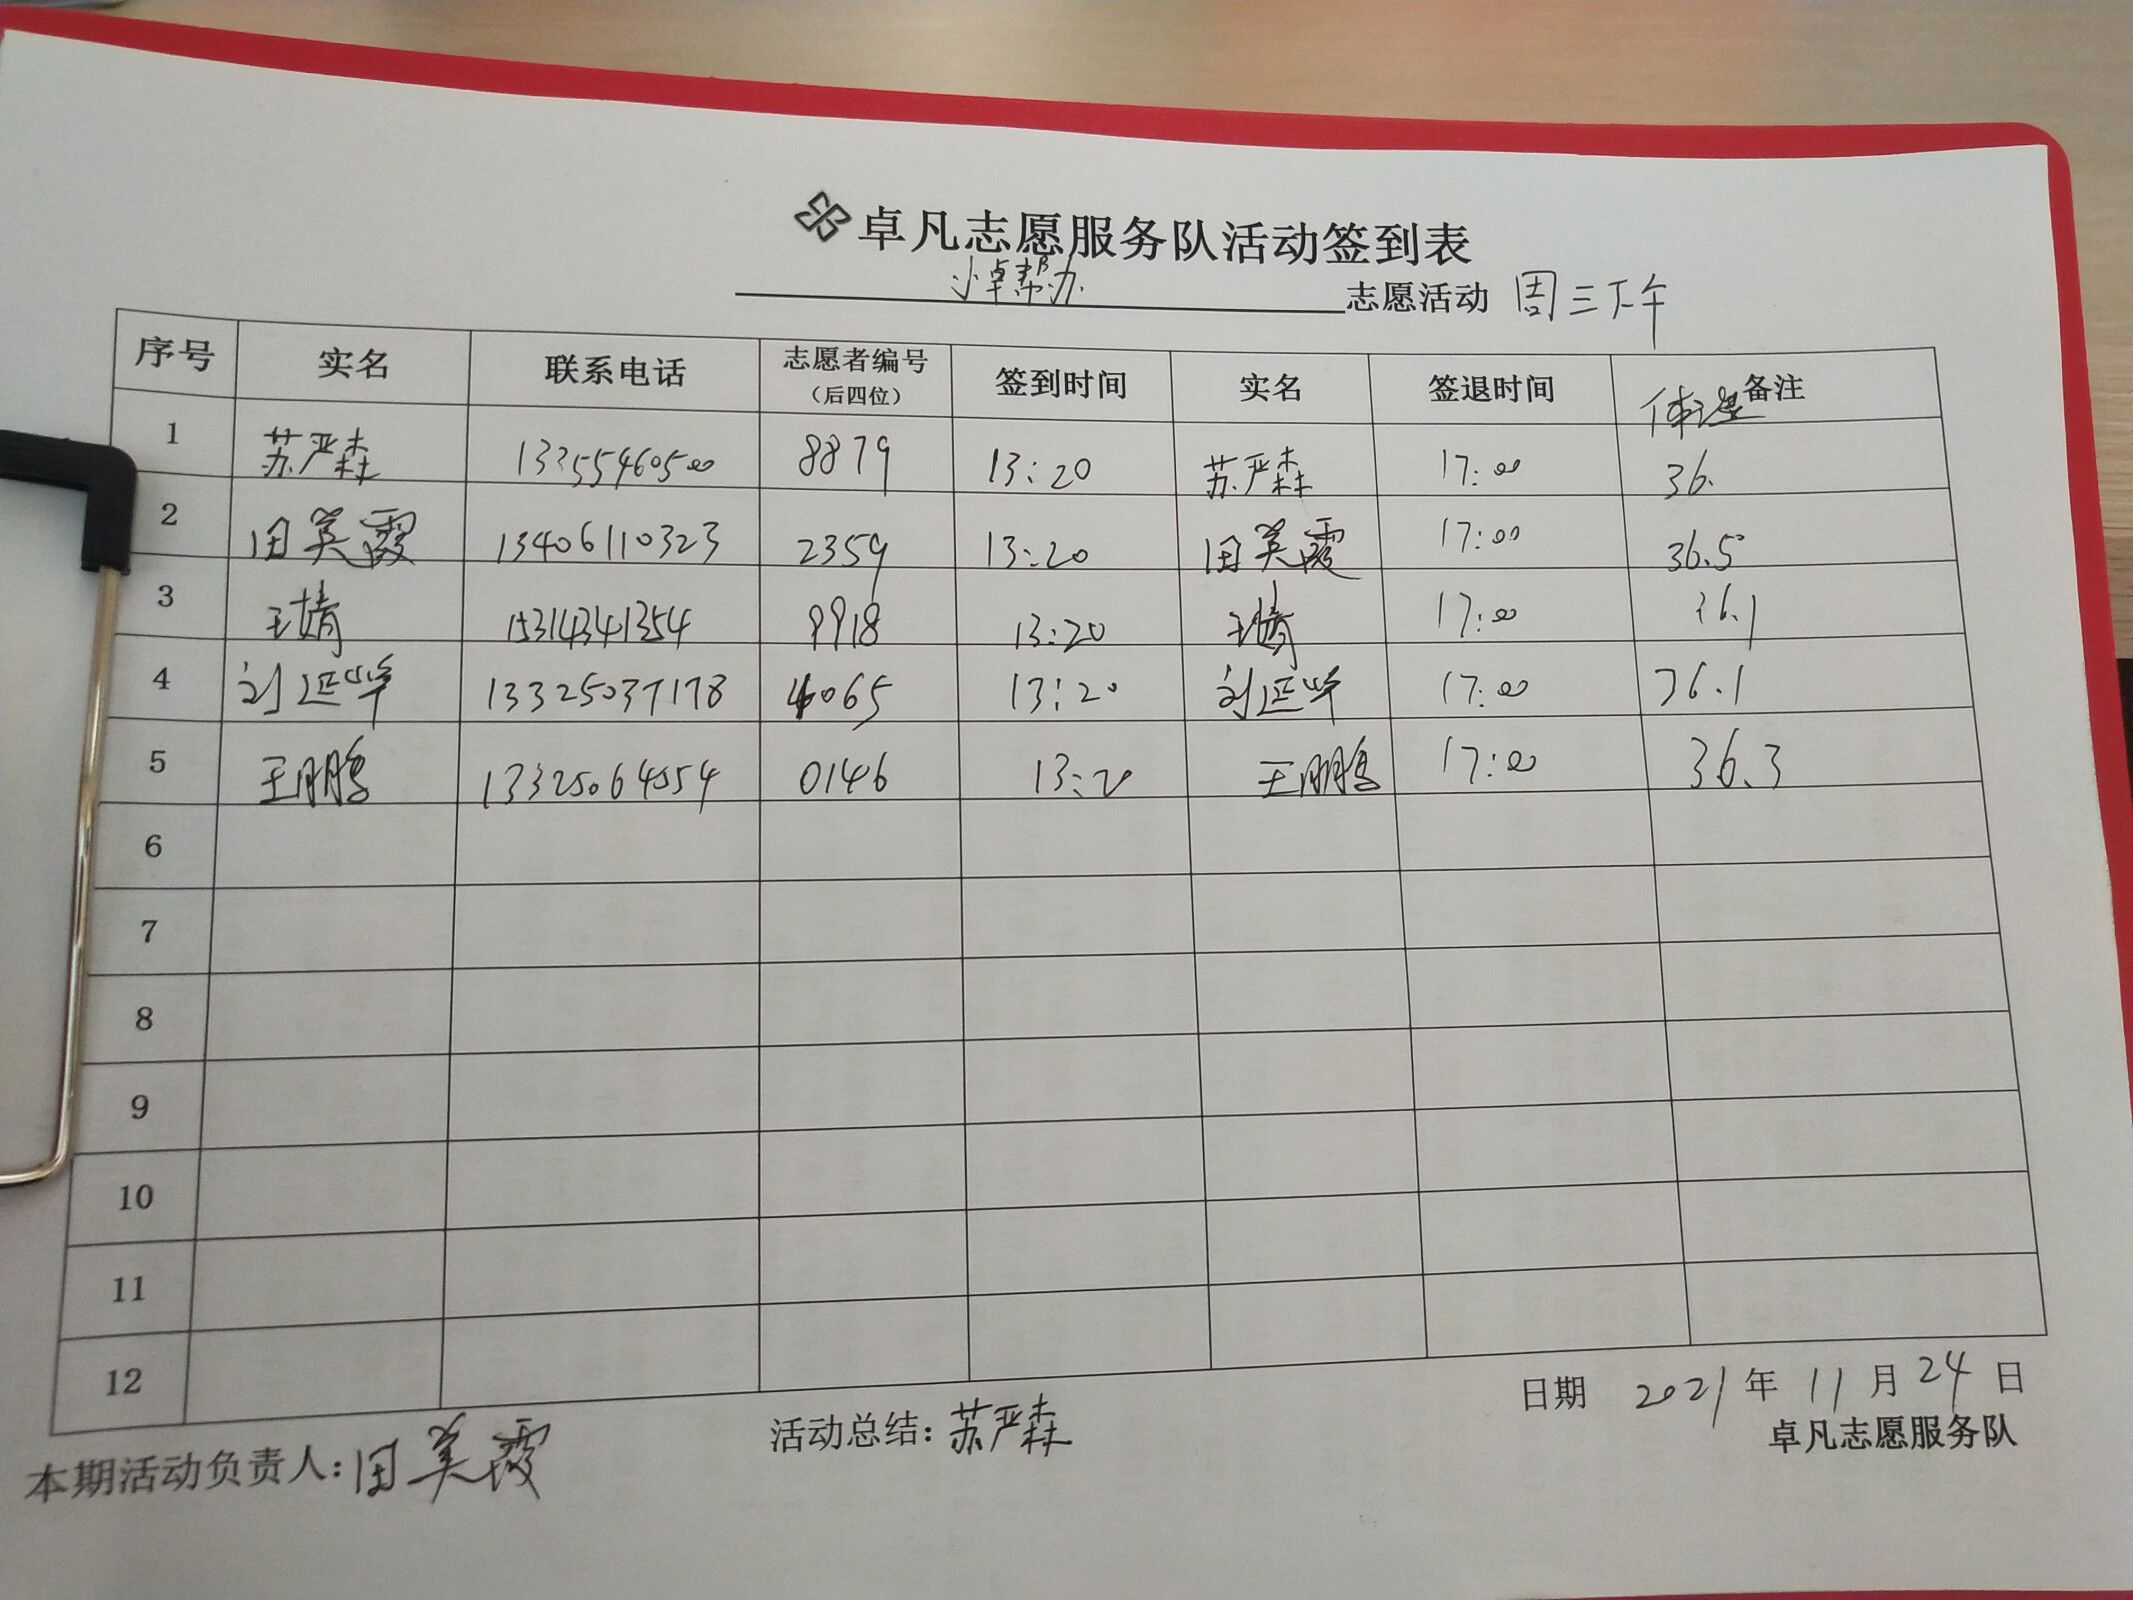 卓凡志愿服务队活动签到表
小卓帮办 志愿活动 周三下午
序号 实名 联系电话 志愿者编号（后四位） 签到时间 实名 签退时间 体温 备注
1 苏严森 13355460500 8879 13:20 苏严森 17:00 36.
2 田美霞 13406110323 2359 13:20 田美霞 17:00 36.5
3 王婧 15314341354 9918 13:20 王婧 17:00 36.1
4 刘延华 13325037178 4065 13:20 刘延华 17:00 36.1
5 王鹏 13325064554 0146 13:20 王鹏 17:00 36.3
6
7
8
9
10
11
12
日期 2021年11月24日
本期活动负责人：田美霞 活动总结：苏严森 卓凡志愿服务队